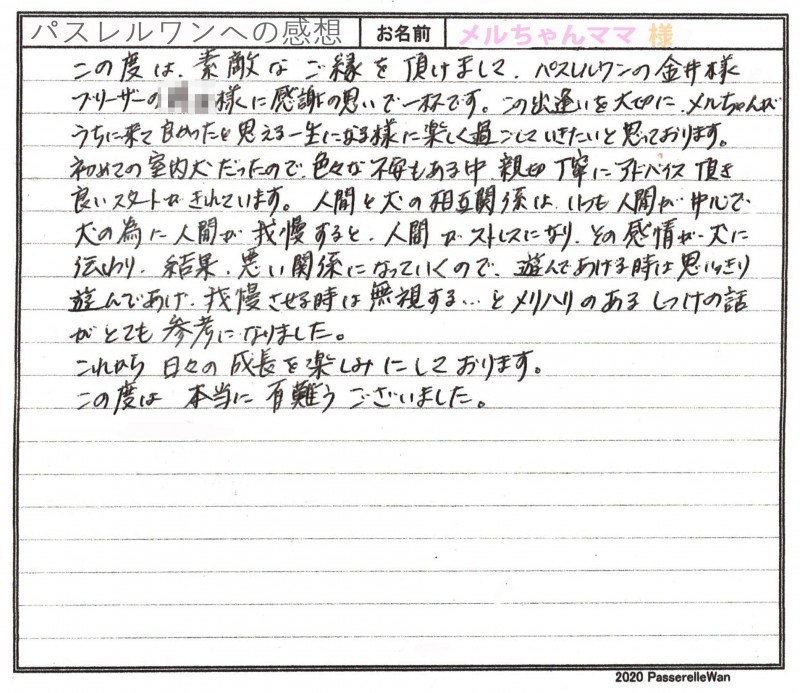 パスレルワンへの感想 お名前 メルちゃんママ 様
この度は、素敵なご縁を頂けまして、パスレルワンの金井様
ブリーザーの 様に感謝の思いで一杯です。この出逢いを大切に、メルちゃんが
うちに来て良かったと思える一生になる様に楽しく過ごしていきたいと思っております。
初めての室内犬だったので、色々な不安もある中、親切丁寧にアドバイス頂き
良いスタートがきれています。人間と犬の相互関係は、いつも人間が中心で
犬の為に人間が我慢すると、人間がストレスになり、その感情が犬に
伝わり、結果、悪い関係になっていくので、遊んであげる時は思いっきり
遊んであげ、我慢させる時は無視する…とメリハリのあるしつけの話
がとても参考になりました。
これから日々の成長を楽しみにしております。
この度は本当に有難うございました。
2020 PasserelleWan